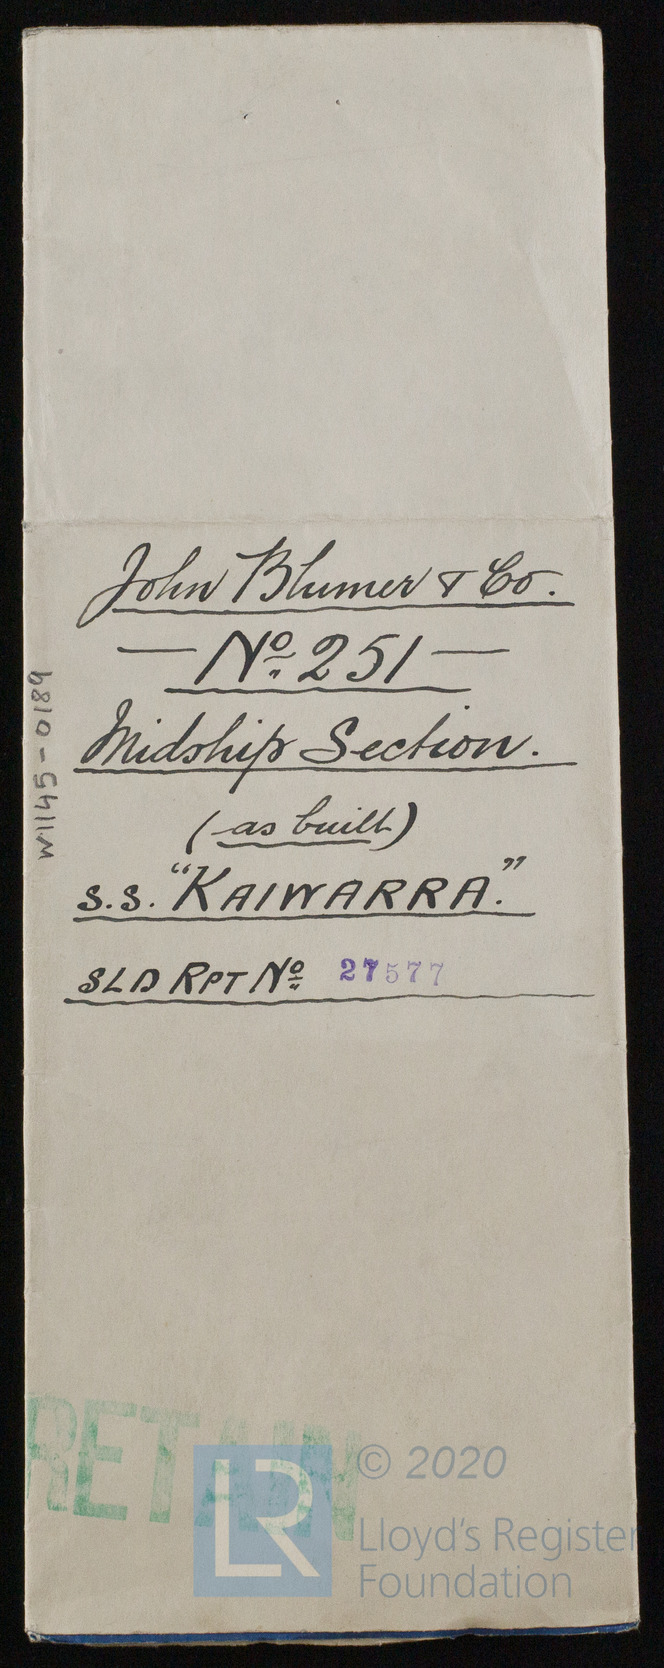 John Blumer & Co.
— Nº 251 —
Midship Section.
(as built)
S.S. "KAIWARRA."
SLD RPT Nº 27577
W1145-0189
RETAIN
LR
© 2020
Lloyd's Register
Foundation